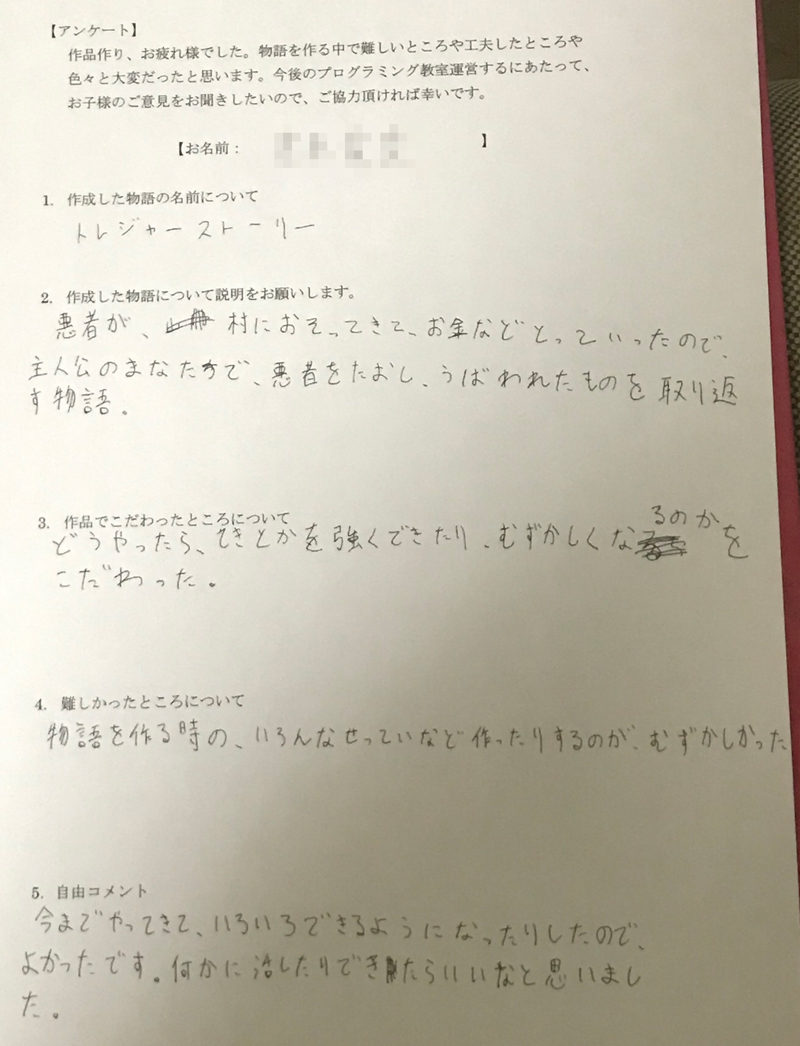 【アンケート】
作品作り、お疲れ様でした。物語を作る中で難しいところや工夫したところや
色々と大変だったと思います。今後のプログラミング教室運営するにあたって、
お子様のご意見をお聞きしたいので、ご協力頂ければ幸いです。
【お名前： 】
1. 作成した物語の名前について
トレジャーストーリー
2. 作成した物語について説明をお願いします。
悪者が、村におそってきて、お金などとっていったので、
主人公のまなたちで、悪者をたおし、うばわれたものを取り返
す物語。
3. 作品でこだわったところについて
どうやったら、てきとかを強くできたり、むずかしくなるのかを
こだわった。
4. 難しかったところについて
物語を作る時の、いろんなせっていなど作ったりするのが、むずかしかった
5. 自由コメント
今までやってきて、いろいろできるようになったりしたので、
よかったです。何かに活したりできたらいいなと思いまし
た。